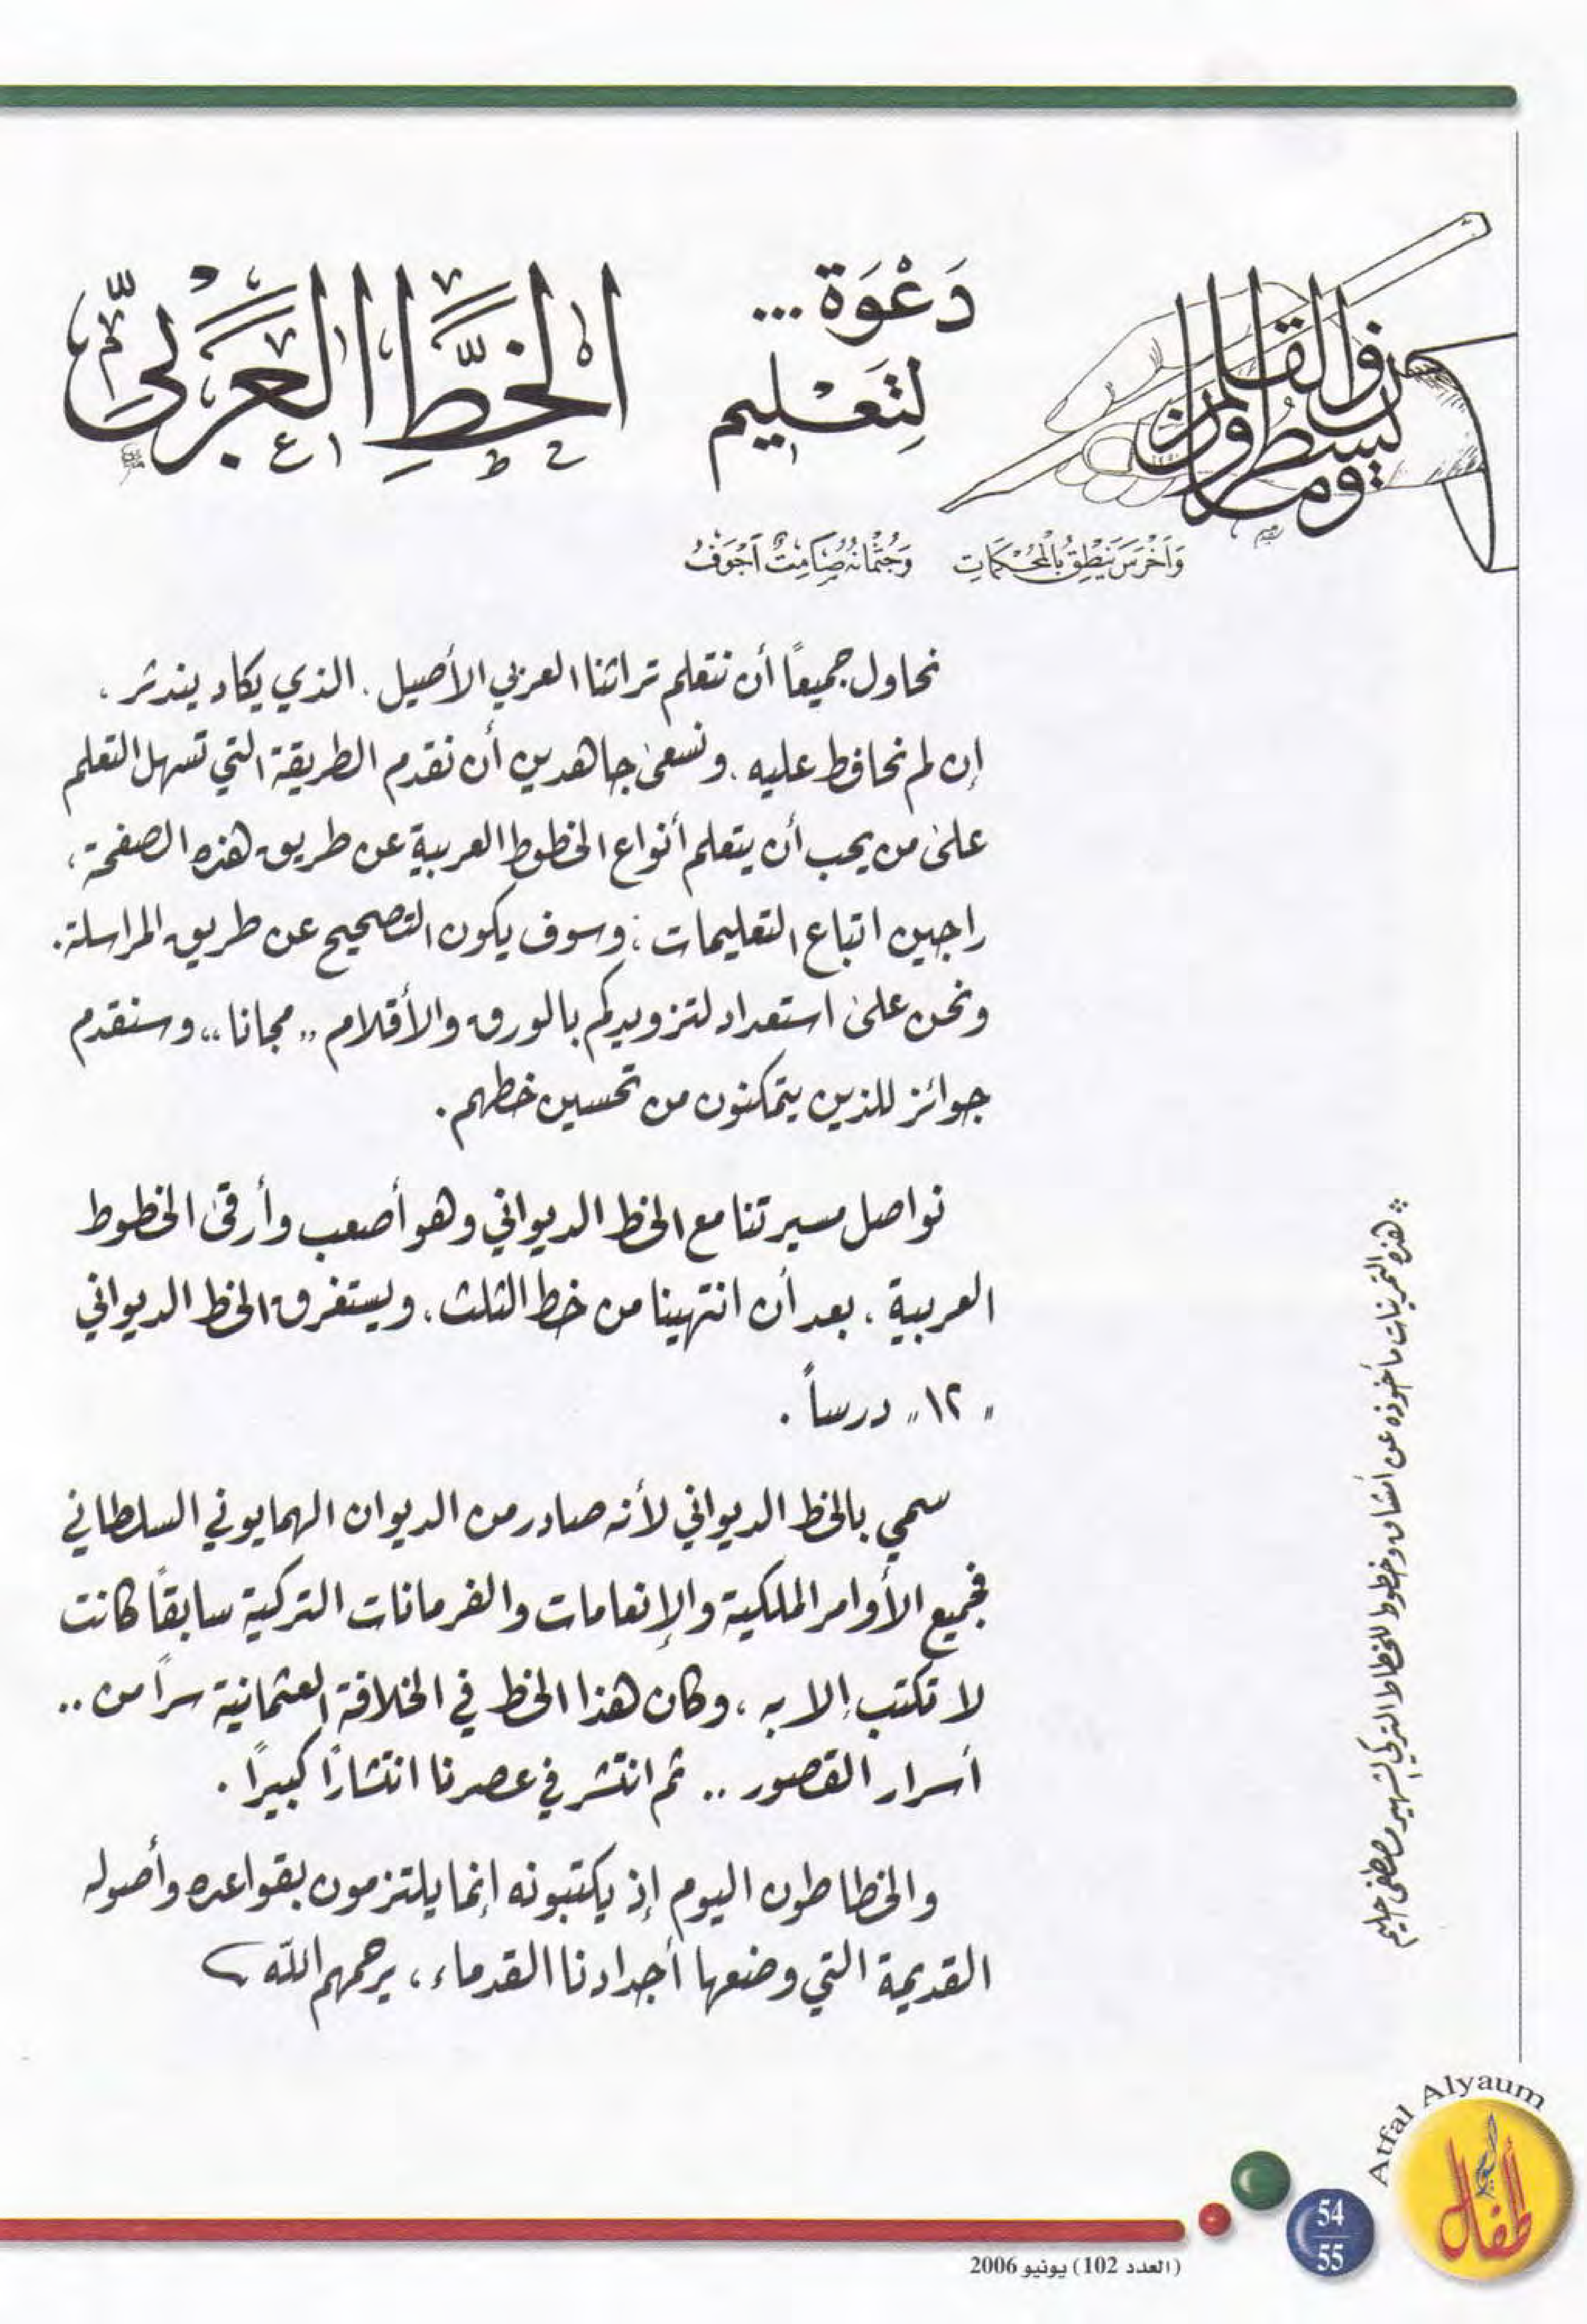 ن والقلم وما يسطرون
دَعْوَة...
لِتَعْليم
الخَطِّ العَرَبيّ
وَأَخْرَسَ يَنْطِقُ بِالْمُحْكَمَاتِ وَجُثْمَانُهُ صَامِتٌ أَجْوَفُ
نحاول جميعًا أن نتعلم تراثنا العربي الأصيل . الذي يكاد يندثر ،
إن لم نحافظ عليه . ونسعى جاهدين أن نقدم الطريقة التي تسهل التعلم
على من يحب أن يتعلم أنواع الخطوط العربية عن طريق هذه الصفحة ،
راجين اتباع التعليمات ؛ وسوف يكون التصحيح عن طريق المراسلة .
ونحن على استعداد لتزويدكم بالورق والأقلام ,, مجانا ,, وسنقدم
جوائز للذين يتمكنون من تحسين خطهم .
نواصل مسيرتنا مع الخط الديواني وهو أصعب وأرقى الخطوط
العربية ، بعد أن انتهينا من خط الثلث ، ويستغرق الخط الديواني
" ١٢ " درساً .
سمي بالخط الديواني لأنه صادر من الديوان الهمايوني السلطاني
فجميع الأوامر الملكية والإنعامات والفرمانات التركية سابقًا كانت
لا تكتب إلا به ، وكان هذا الخط في الخلافة العثمانية سراً من ..
أسرار القصور .. ثم انتشر في عصرنا انتشارًا كبيرًا .
والخطاطون اليوم إذ يكتبونه إنما يلتزمون بقواعده وأصوله
القديمة التي وضعها أجدادنا القدماء ، يرحمهم الله
* هذه التمرينات مأخوذه عن أمشاق وخطوط للخطاط التركي الشهير مصطفى حليم
Atfal Alyaum
أطفال اليوم
54
55
(العدد 102) يونيو 2006